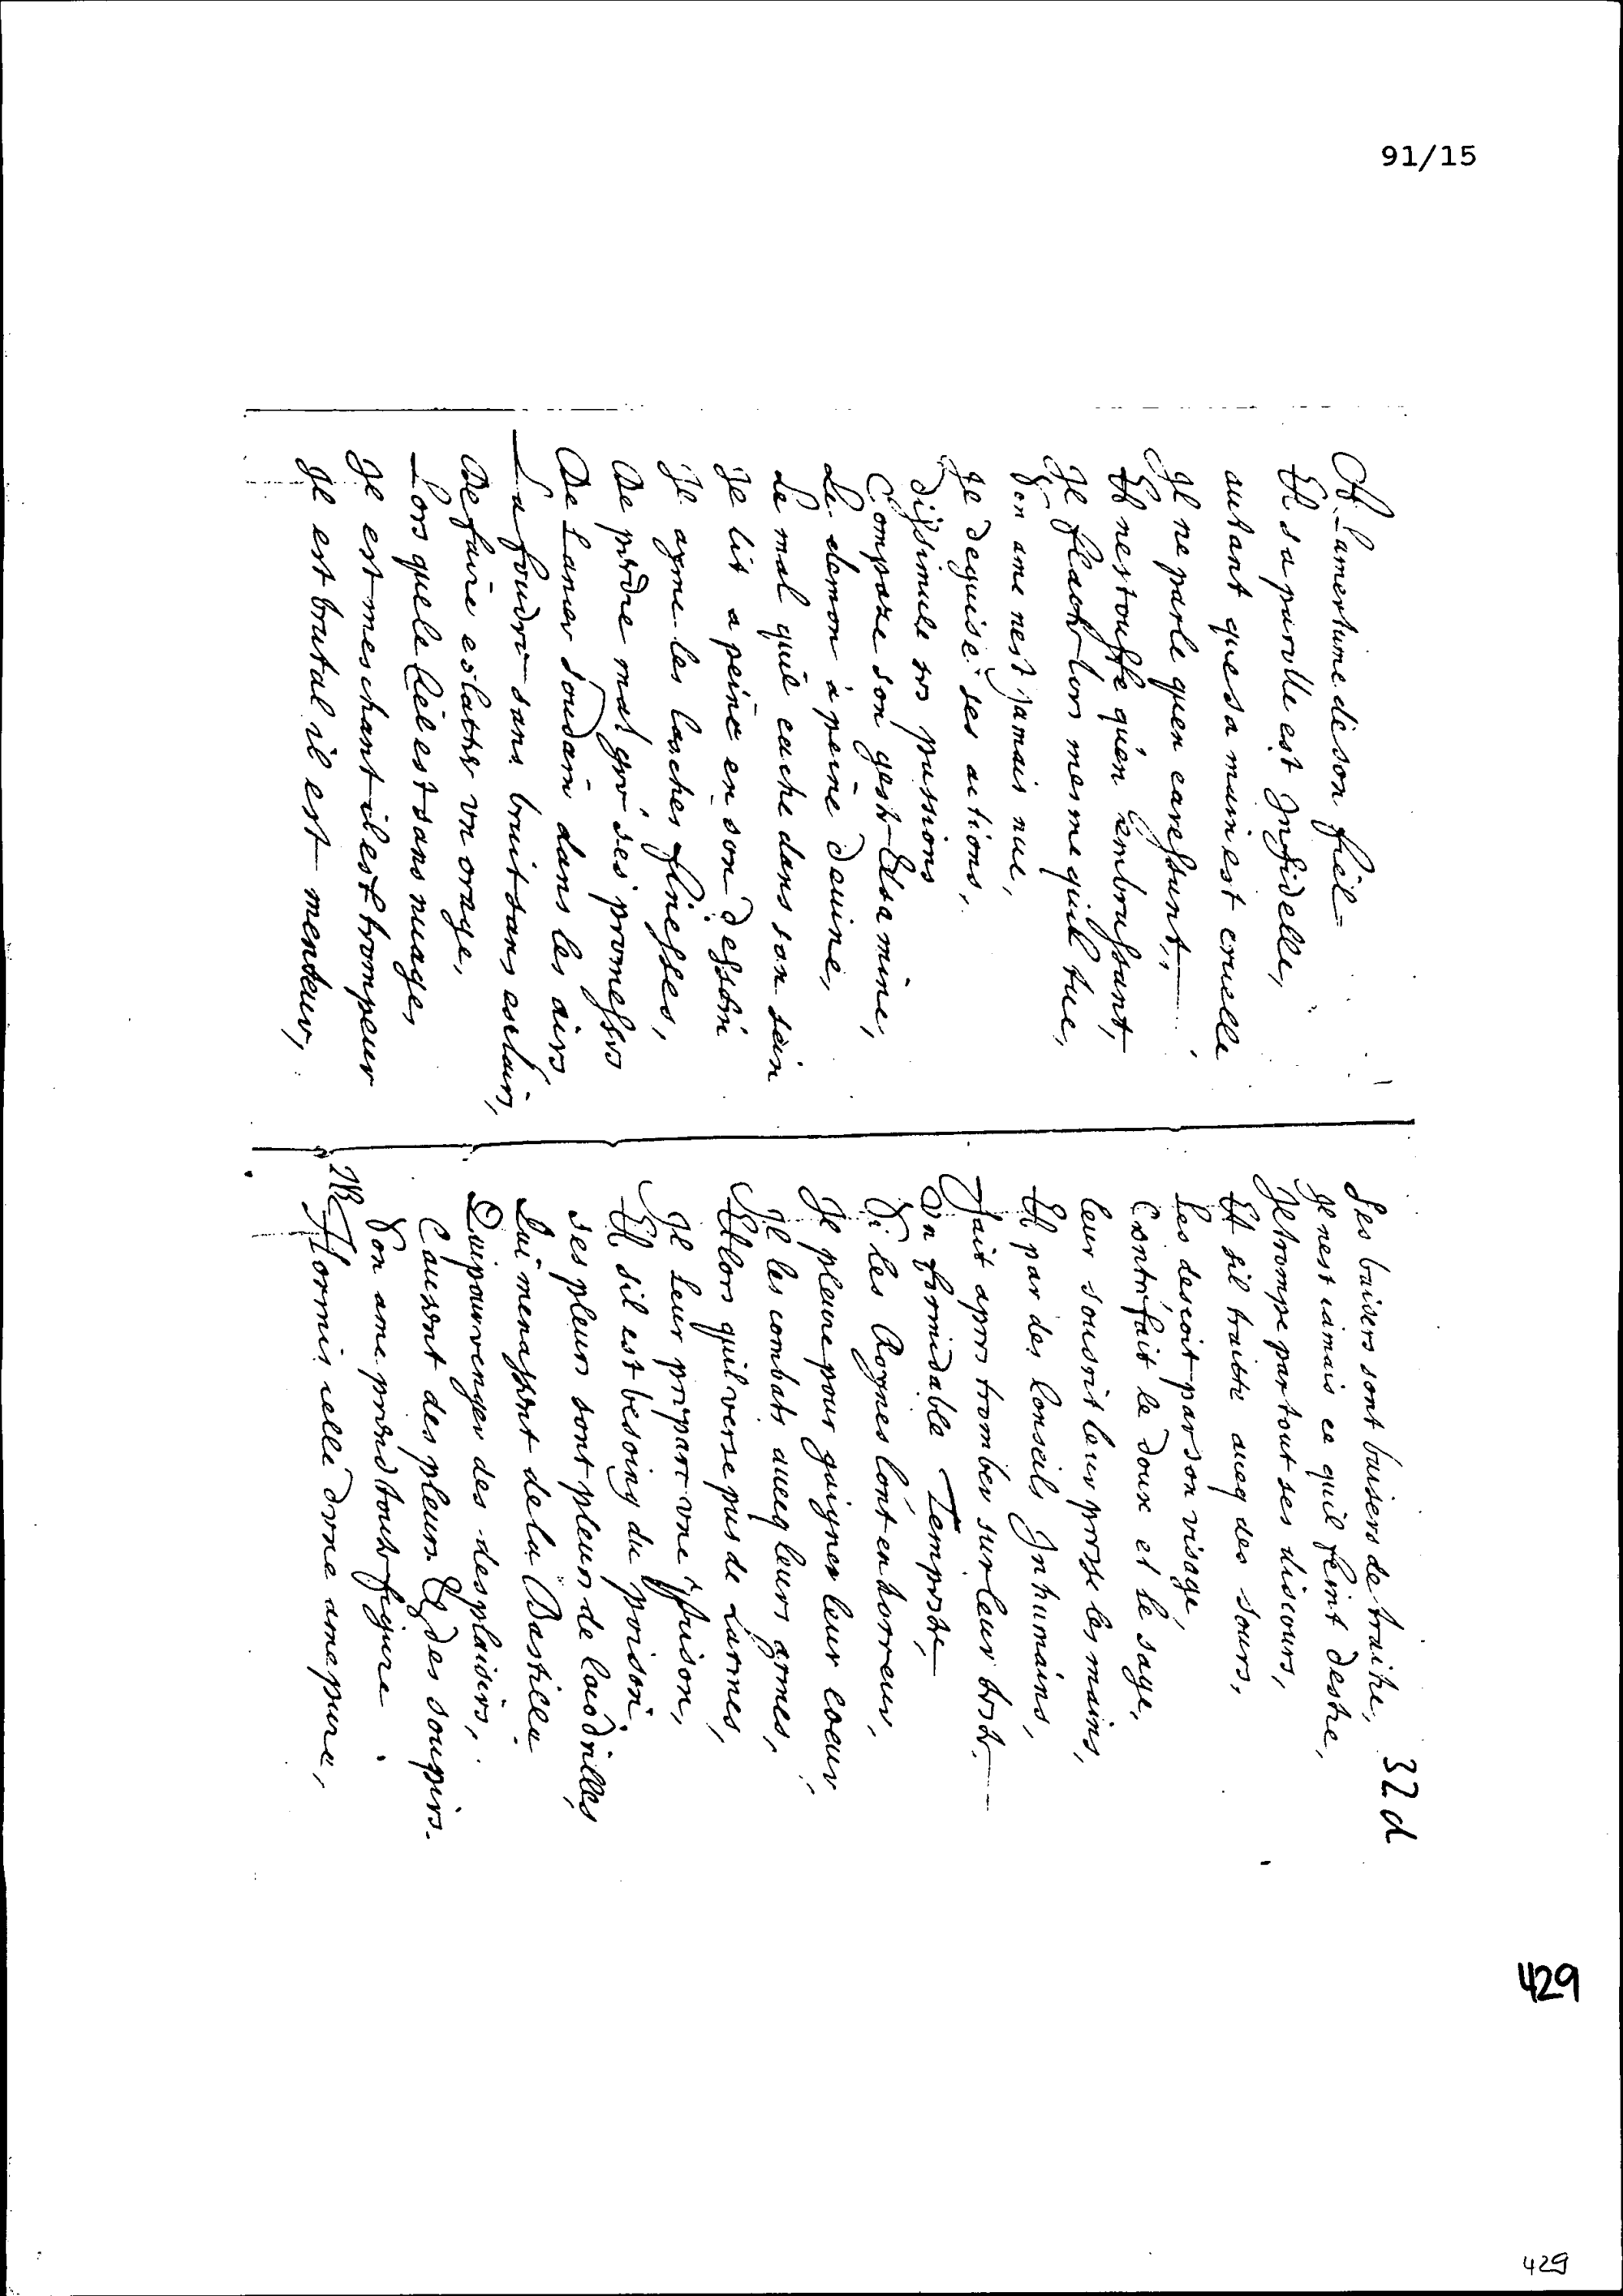 91/15
Et Lamertume de son fiel
Et sa parolle est Infidelle,
autant que sa main est cruelle
Il ne parle quen caressant,
Et nestouffe qu'en embrassant,
Il flatte lors mesme quil tue,
Son ame nest jamais nue,
Il deguise ses actions,
dissimule ses passions
Compoze son geste Et sa mine,
Le demon à peine devine,
Le mal quil cache dans son sein
Il lit a peine en son dessein
Il ayme les lasches finesses,
De perdre malgré ses promesses
De Lancer soudain dans les airs
La foudre sans bruit sans esclairs,
De faire esclatter un orage,
Lors que le Ciel est sans nuage,
Il est meschant il est trompeur
Il est brutal il est menteur,
32d
Ses baisers sont baisers de traitre,
Il nest iamais ce quil feint destre,
Il trompe par tout ses discours,
Et sil traitte aucq des sours,
Les descoit par son visage,
Contrefait le doux et le sage,
Leur sousrit leur presse les mains,
Et par des Conseils Inhumains,
Fait apres tromber sur leur teste
Un formidable Tempeste
Si les Roynes lont en horreur,
Il pleure pour gaigner leur coeur
Il les combats avecq leurs armes,
Et lors quil verse pus de Larmes,
Il Leur prepare une prison,
Et sil est besoing du poison
ses pleurs sont pleurs de
Qui menassent de la Bastille
Qui pour venger des desplaisirs,
Causent des pleurs Et des soupirs.
Son ame prend toute figure
Hormis celle dune ame pure,
429
429